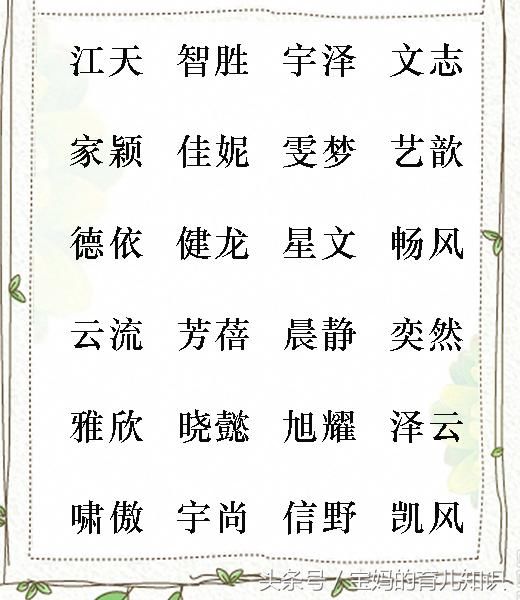 江天 智胜 宇泽 文志
家颖 佳妮 雯梦 艺歆
德依 健龙 星文 畅风
云流 芳蓓 晨静 奕然
雅欣 晓懿 旭耀 泽云
啸傲 宇尚 信野 凯风
头条号 / 宝妈的育儿知识